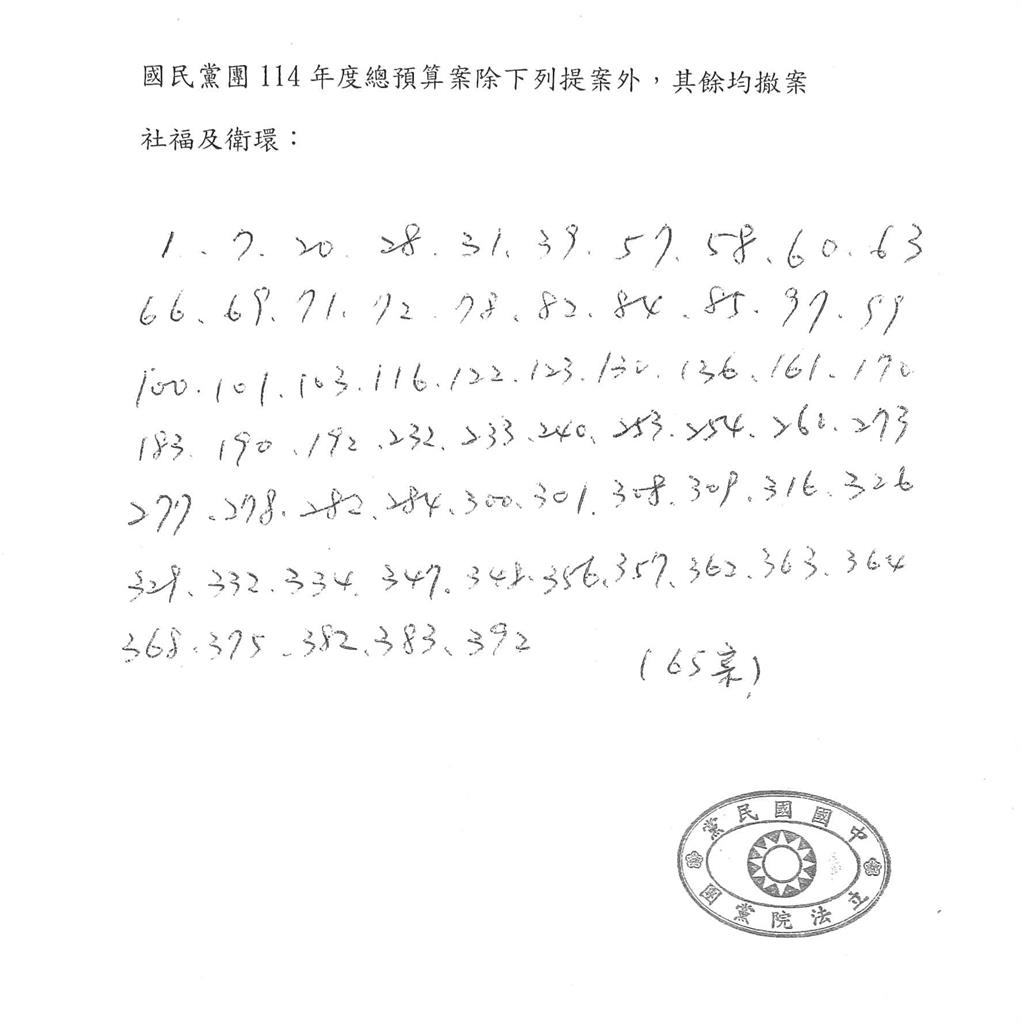 國民黨團 114 年度總預算案除下列提案外，其餘均撤案
社福及衛環：
1、7、20、28、31、39、57、58、60、63
66、69、71、72、78、82、84、85、97、99
100、101、103、116、122、123、130、136、161、170
183、190、192、232、233、240、253、254、260、273
277、278、282、284、300、301、308、309、316、326
329、332、334、347、348、356、357、362、363、364
368、375、382、383、392
（65案）
中國國民黨
立法院黨團